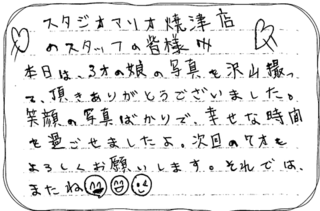 スタジオマリオ焼津店
のスタッフの皆様へ
本日は、3才の娘の写真を沢山撮っ
て、頂きありがとうございました。
笑顔の写真ばかりで、幸せな時間
を過ごせましたよ。次回の7才も
よろしくお願いします。それでは、
またね